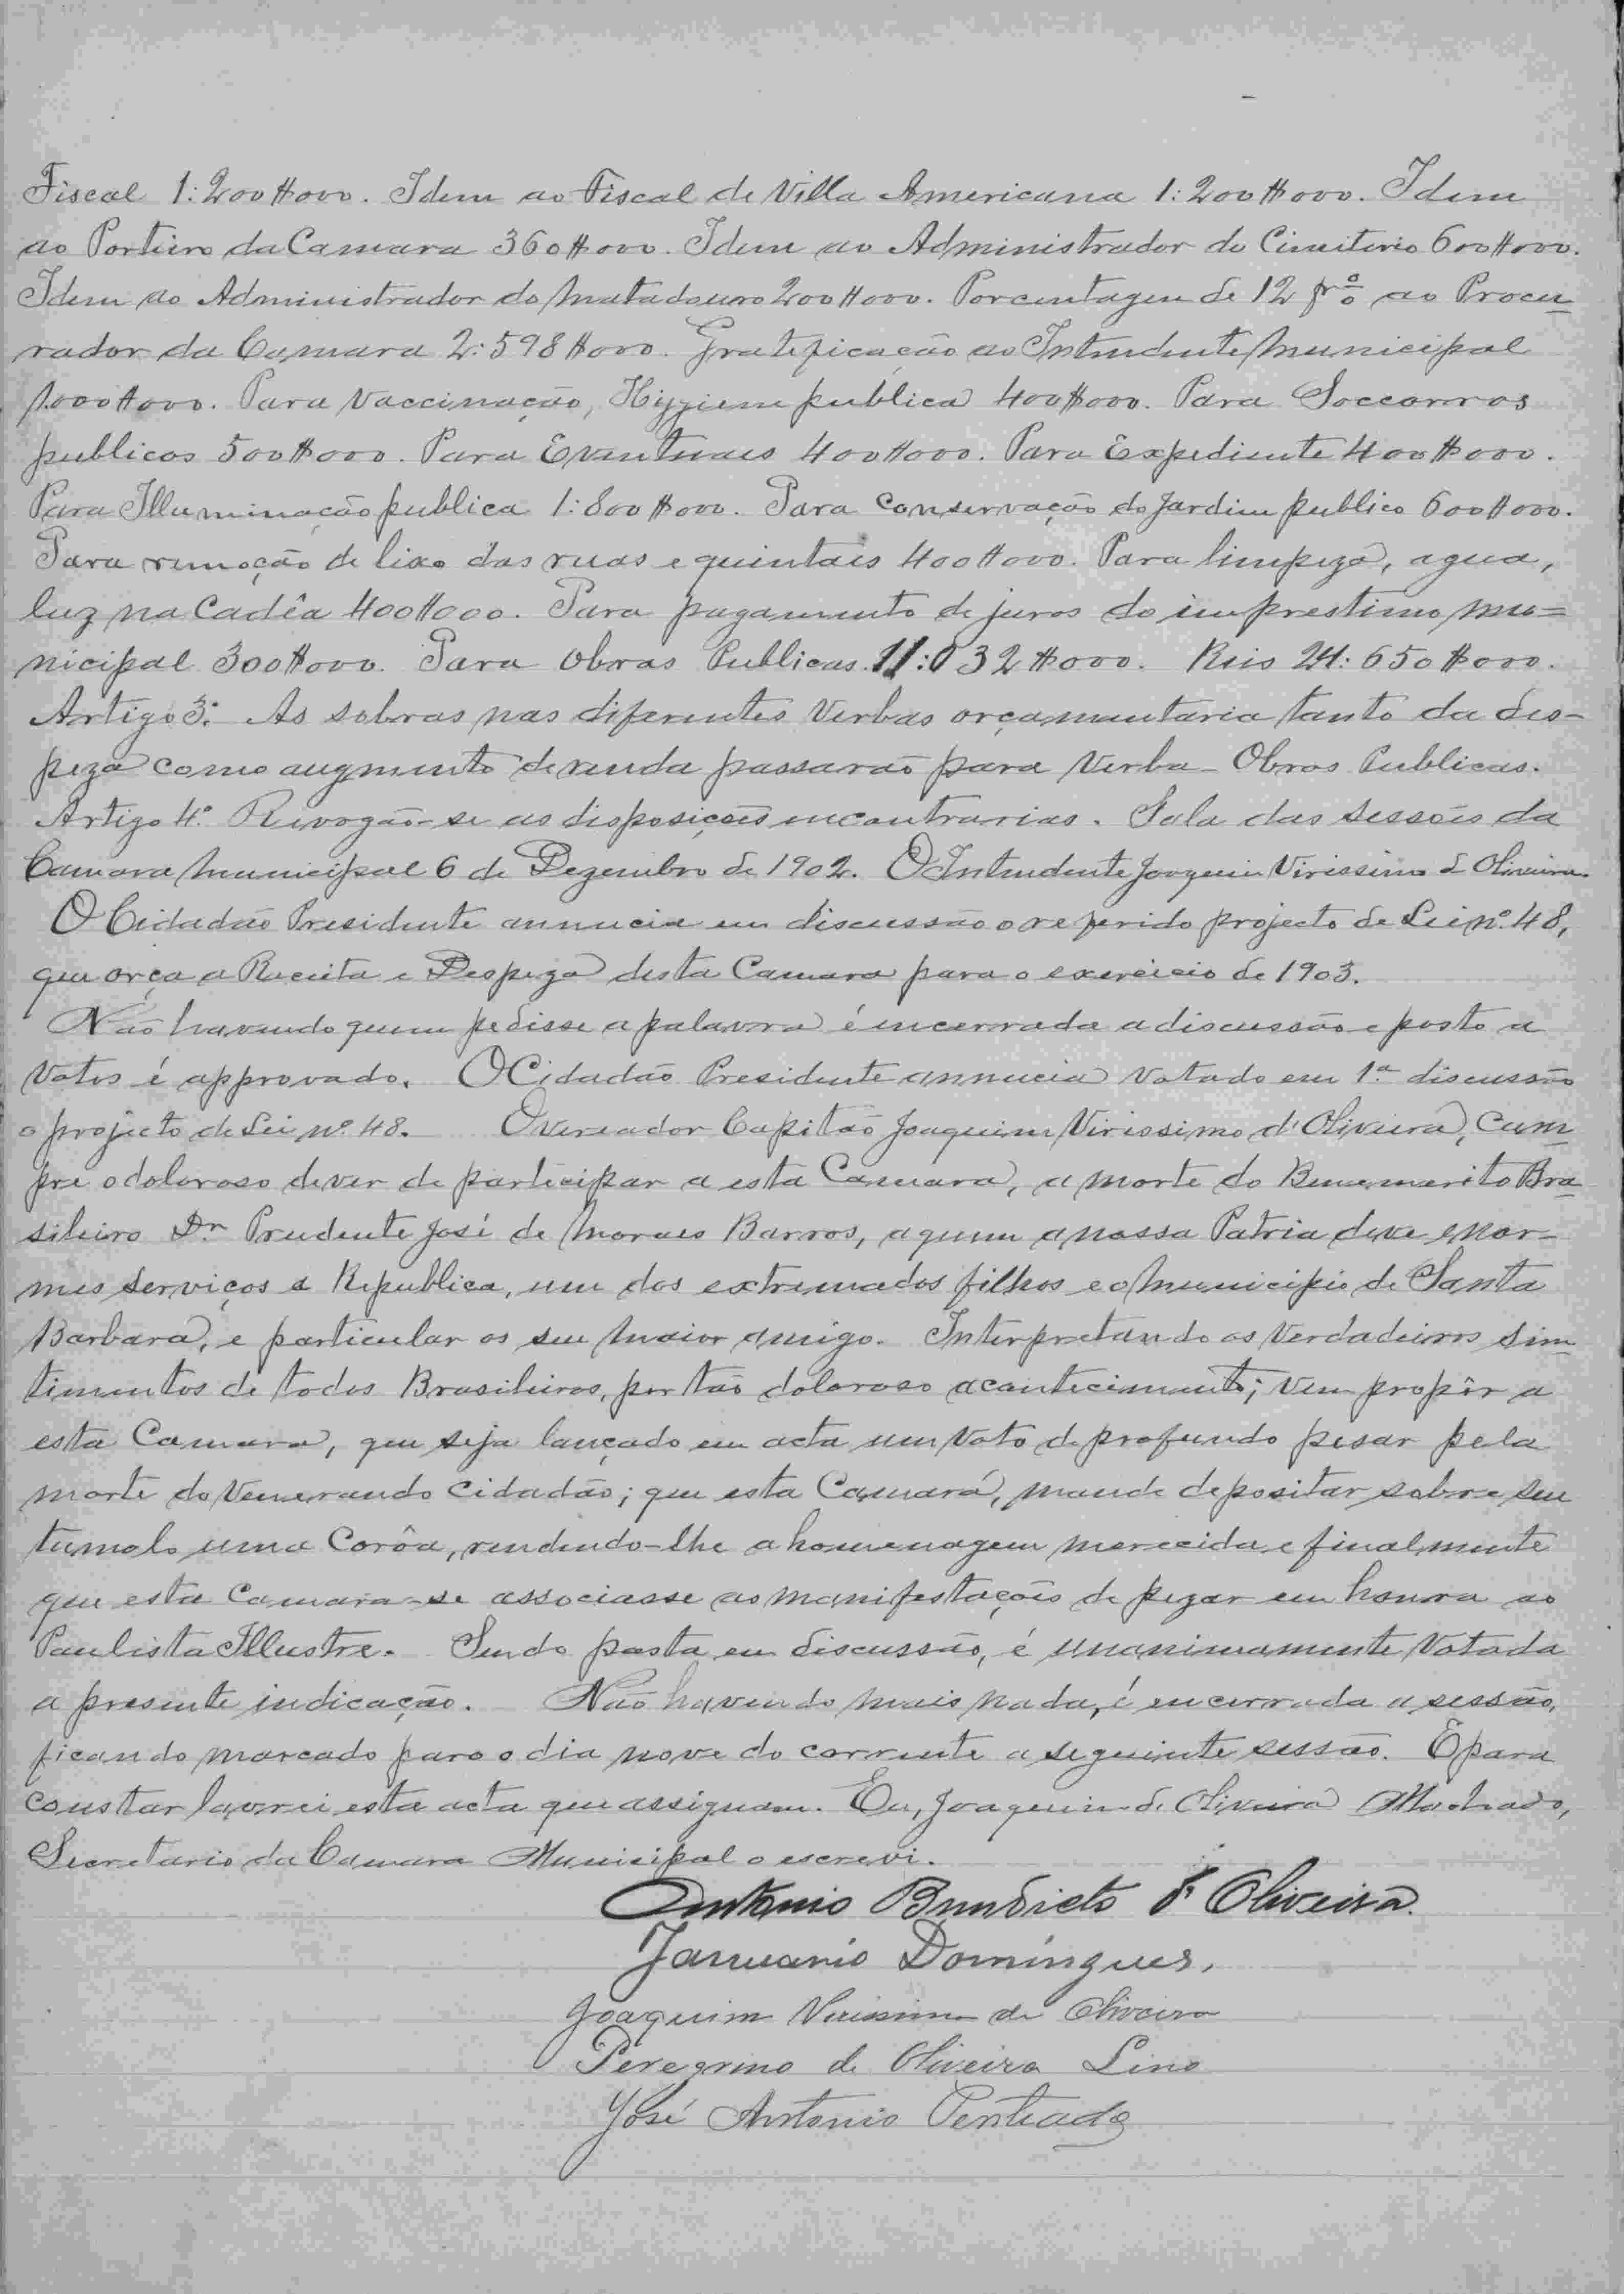 Fiscal 1:200$000. Idem ao Fiscal de Villa Americana 1:200$000. Idem
ao Porteiro da Camara 360$000. Idem ao Administrador do Cimiterio 600$000.
Idem ao Administrador do Matadouro 200$000. Porcentagem de 12 pr% ao Procu-
rador da Camara 2:598$000. Gratificação ao Intendente Municipal
1.000$000. Para Vaccinação, Hygiene publica 400$000. Para Soccorros
publicos 500$000. Para Eventuaes 400$000. Para Expediente 400$000.
Para Illuminação publica 1:800$000. Para Conservação do Jardim publico 600$000.
Para remoção de lixo das ruas e quintaes 400$000. Para limpeza, agua,
luz na Cadêa 400$000. Para pagamento de juros do imprestimo mu=
nicipal 300$000. Para Obras Publicas 11:032$000. Reis 24:650$000.
Artigo 3º As sobras nas diferentes Verbas orçamentaria tanto da des-
peza como augmento de renda passarão para Verba - Obras Publicas.
Artigo 4º Revogão-se as disposições encontrarias. Sala das Sessões da
Camara Municipal 6 de Dezembro de 1902. O Intendente Joaquim Virissimo d Oliveira.
O Cidadão Presidente annucia em discussão o referido projecto de Lei nº 48,
que orça a Receita e Despeza desta Camara para o exercicio de 1903.
Não havendo quem pedisse a palavra é encerrada a discussão e posto a
Votos é approvado. O Cidadão Presidente annucia Votado em 1ª discussão
o projecto de Lei nº 48. O vereador Capitão Joaquim Virissimo d'Oliveira, Cum
pre o doloroso dever de participar a esta Camara, a morte do Benemerito Bra-
sileiro Dr. Prudente José de Moraes Barros, a quem a nossa Patria deve enor-
mes Serviços a Republica, um dos extremados filhos e o Municipio de Santa
Barbara, e particular os seu maior amigo. Interpretando os Verdadeiros sen
timentos de todos Brasileiros, por tão doloroso acontecimento; Vem propôr a
esta Camara, que seja lançado em acta um Voto de profundo pesar pela
morte do Venerando Cidadão; que esta Camara, mande depositar sobre seu
tumolo uma Corôa, rendendo-lhe a homenagem merecida e finalmente
que esta Camara-se associasse as manifestações de pezar em honra ao
Paulista Illustre. Sendo posta em discussão, é unanimamente Votada
a presente indicação. Não havendo mais nada, é encerrada a sessão,
ficando marcado para o dia nove do corrente a seguinte sessão. E para
constar lavrei esta acta que assignam. Eu, Joaquim de Oliveira Machado,
Secretario da Camara Municipal o escrevi.
Antonio Bendicto d' Oliveira.
Januario Domingues.
Joaquim Virissimo de Oliveira
Peregrino de Oliveira Lino
José Antonio Penteado